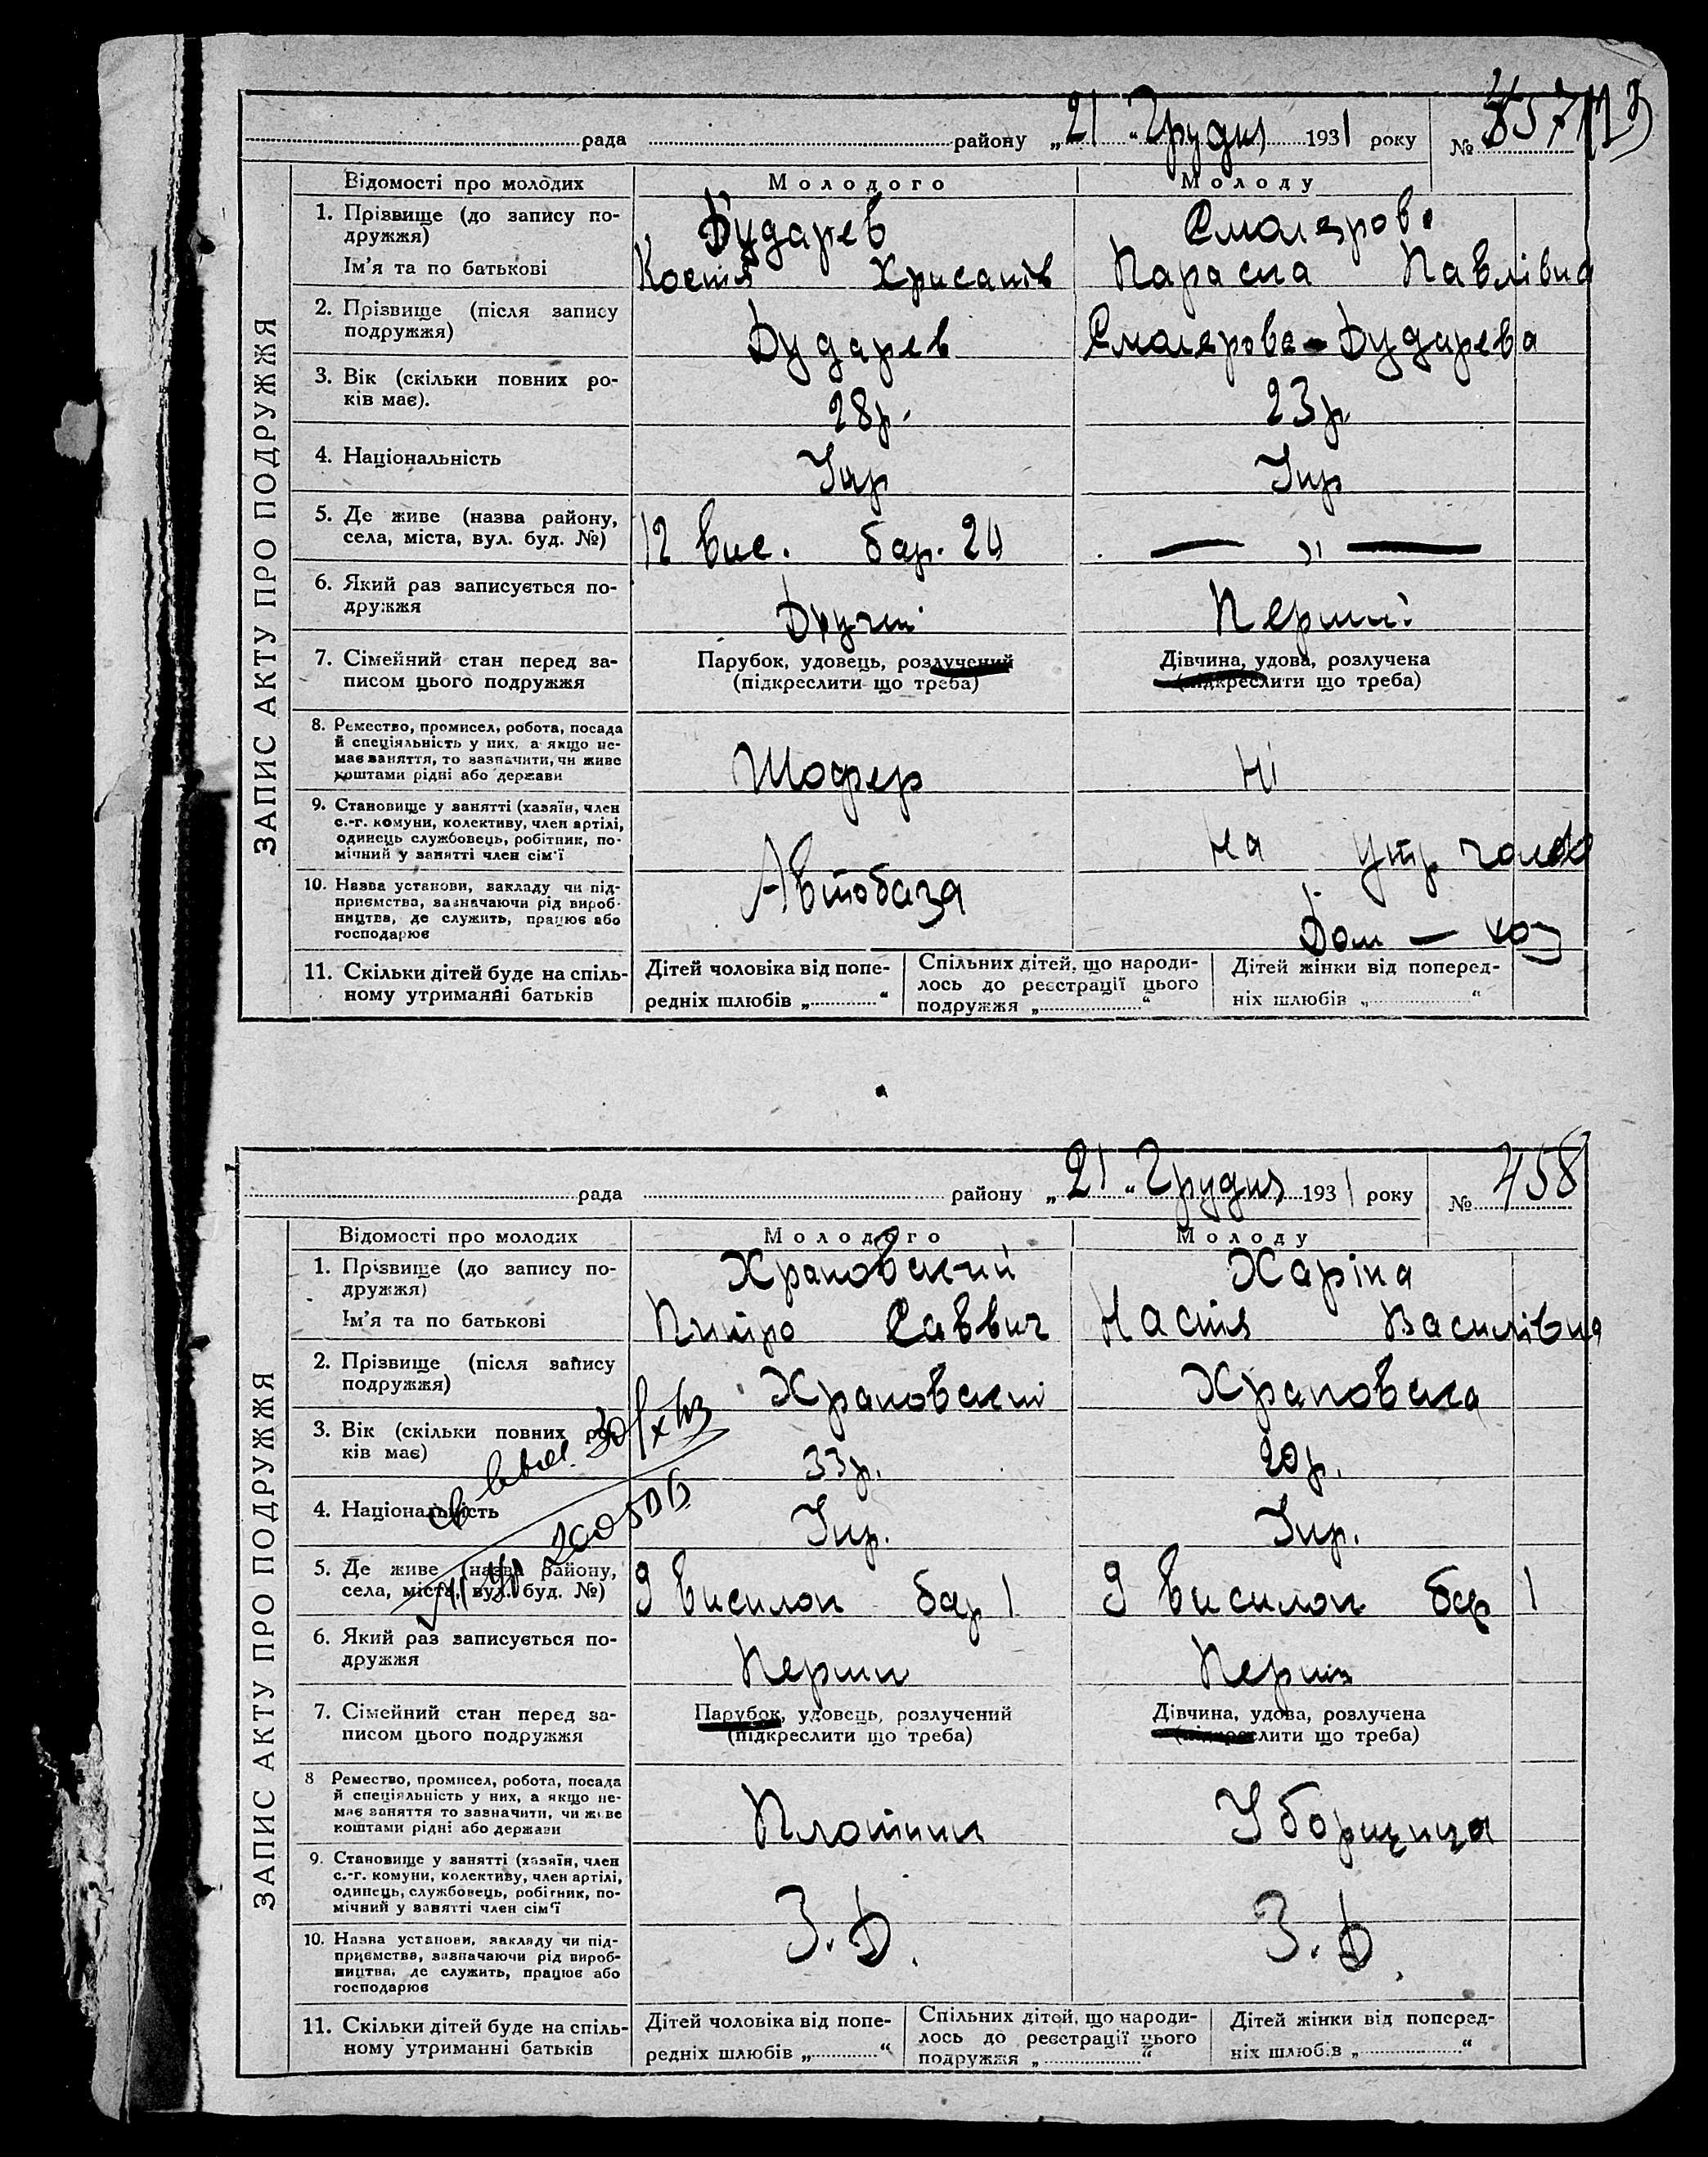 рада району „21" Грудня 1931 року № 457
Відомості про молодих Молодого Молоду
1. Прізвище (до запису по-
дружжя)
Бударев Смолярова
Ім'я та по батькові Костя Хрисатів Параска Павлівна
2. Прізвище (після запису
подружжя)
Бударев Смолярова-Бударева
3. Вік (скільки повних ро-
ків має).
28р. 23р.
4. Національність Укр Укр
5. Де живе (назва району,
села, міста, вул. буд. №)
12 вис. бар. 24 — „ —
6. Який раз записується по-
дружжя
Другий Перший
7. Сімейний стан перед за-
писом цього подружжя
Парубок, удовець, розлучений
(підкреслити що треба)
Дівчина, удова, розлучена
(підкреслити що треба)
8. Ремество, промисел, робота, посада
й спеціяльність у них, а якщо не-
має заняття, то зазначити, чи живе
коштами рідні або держави
Шофер Ні
9. Становище у занятті (хазяїн, член
с.-г. комуни, колективу, член артілі,
одинець службовець, робітник, по-
мічний у занятті член сім'ї
На утр
10. Назва установи, закладу чи під-
приємства, зазначаючи рід вироб-
ництва, де служить, працює або
господарює
Автобаза Дом — хоз
11. Скільки дітей буде на спіль-
ному утриманні батьків
Дітей чоловіка від попе-
редніх шлюбів „ "
Спільних дітей, що народи-
лось до реєстрації цього
подружжя „ "
Дітей жінки від поперед-
ніх шлюбів „ "
ЗАПИС АКТУ ПРО ПОДРУЖЖЯ
рада району „21" Грудня 1931 року № 458
Відомості про молодих Молодого Молоду
1. Прізвище (до запису по-
дружжя)
Храповський Харіна
Ім'я та по батькові Питро Саввич Настя Василівна
2. Прізвище (після запису
подружжя)
Храповський Храповська
3. Вік (скільки повних ро-
ків має)
33р. 20р.
4. Національність Укр. Укр.
5. Де живе (назва району,
села, міста, вул. буд. №)
9 висилок бар 1 9 висилок бар 1
6. Який раз записується по-
дружжя
Перший Перший
7. Сімейний стан перед за-
писом цього подружжя
Парубок, удовець, розлучений
(підкреслити що треба)
Дівчина, удова, розлучена
(підкреслити що треба)
8 Ремество, промисел, робота, посада
й спеціяльність у них, а якщо не-
має заняття то зазначити, чи живе
коштами рідні або держави
Плотник Уборщица
9. Становище у занятті (хазяїн, член
с.-г. комуни, колективу, член артілі,
одинець, службовець, робітник, по-
мічний у занятті член сім'ї
З. Д. З. Д.
10. Назва установи, закладу чи під-
приємства, зазначаючи рід вироб-
ництва, де служить, працює або
господарює
11. Скільки дітей буде на спіль-
ному утриманні батьків
Дітей чоловіка від попе-
редніх шлюбів „ "
Спільних дітей, що народи-
лось до реєстрації цього
подружжя „ "
Дітей жінки від поперед-
ніх шлюбів „ "
ЗАПИС АКТУ ПРО ПОДРУЖЖЯ